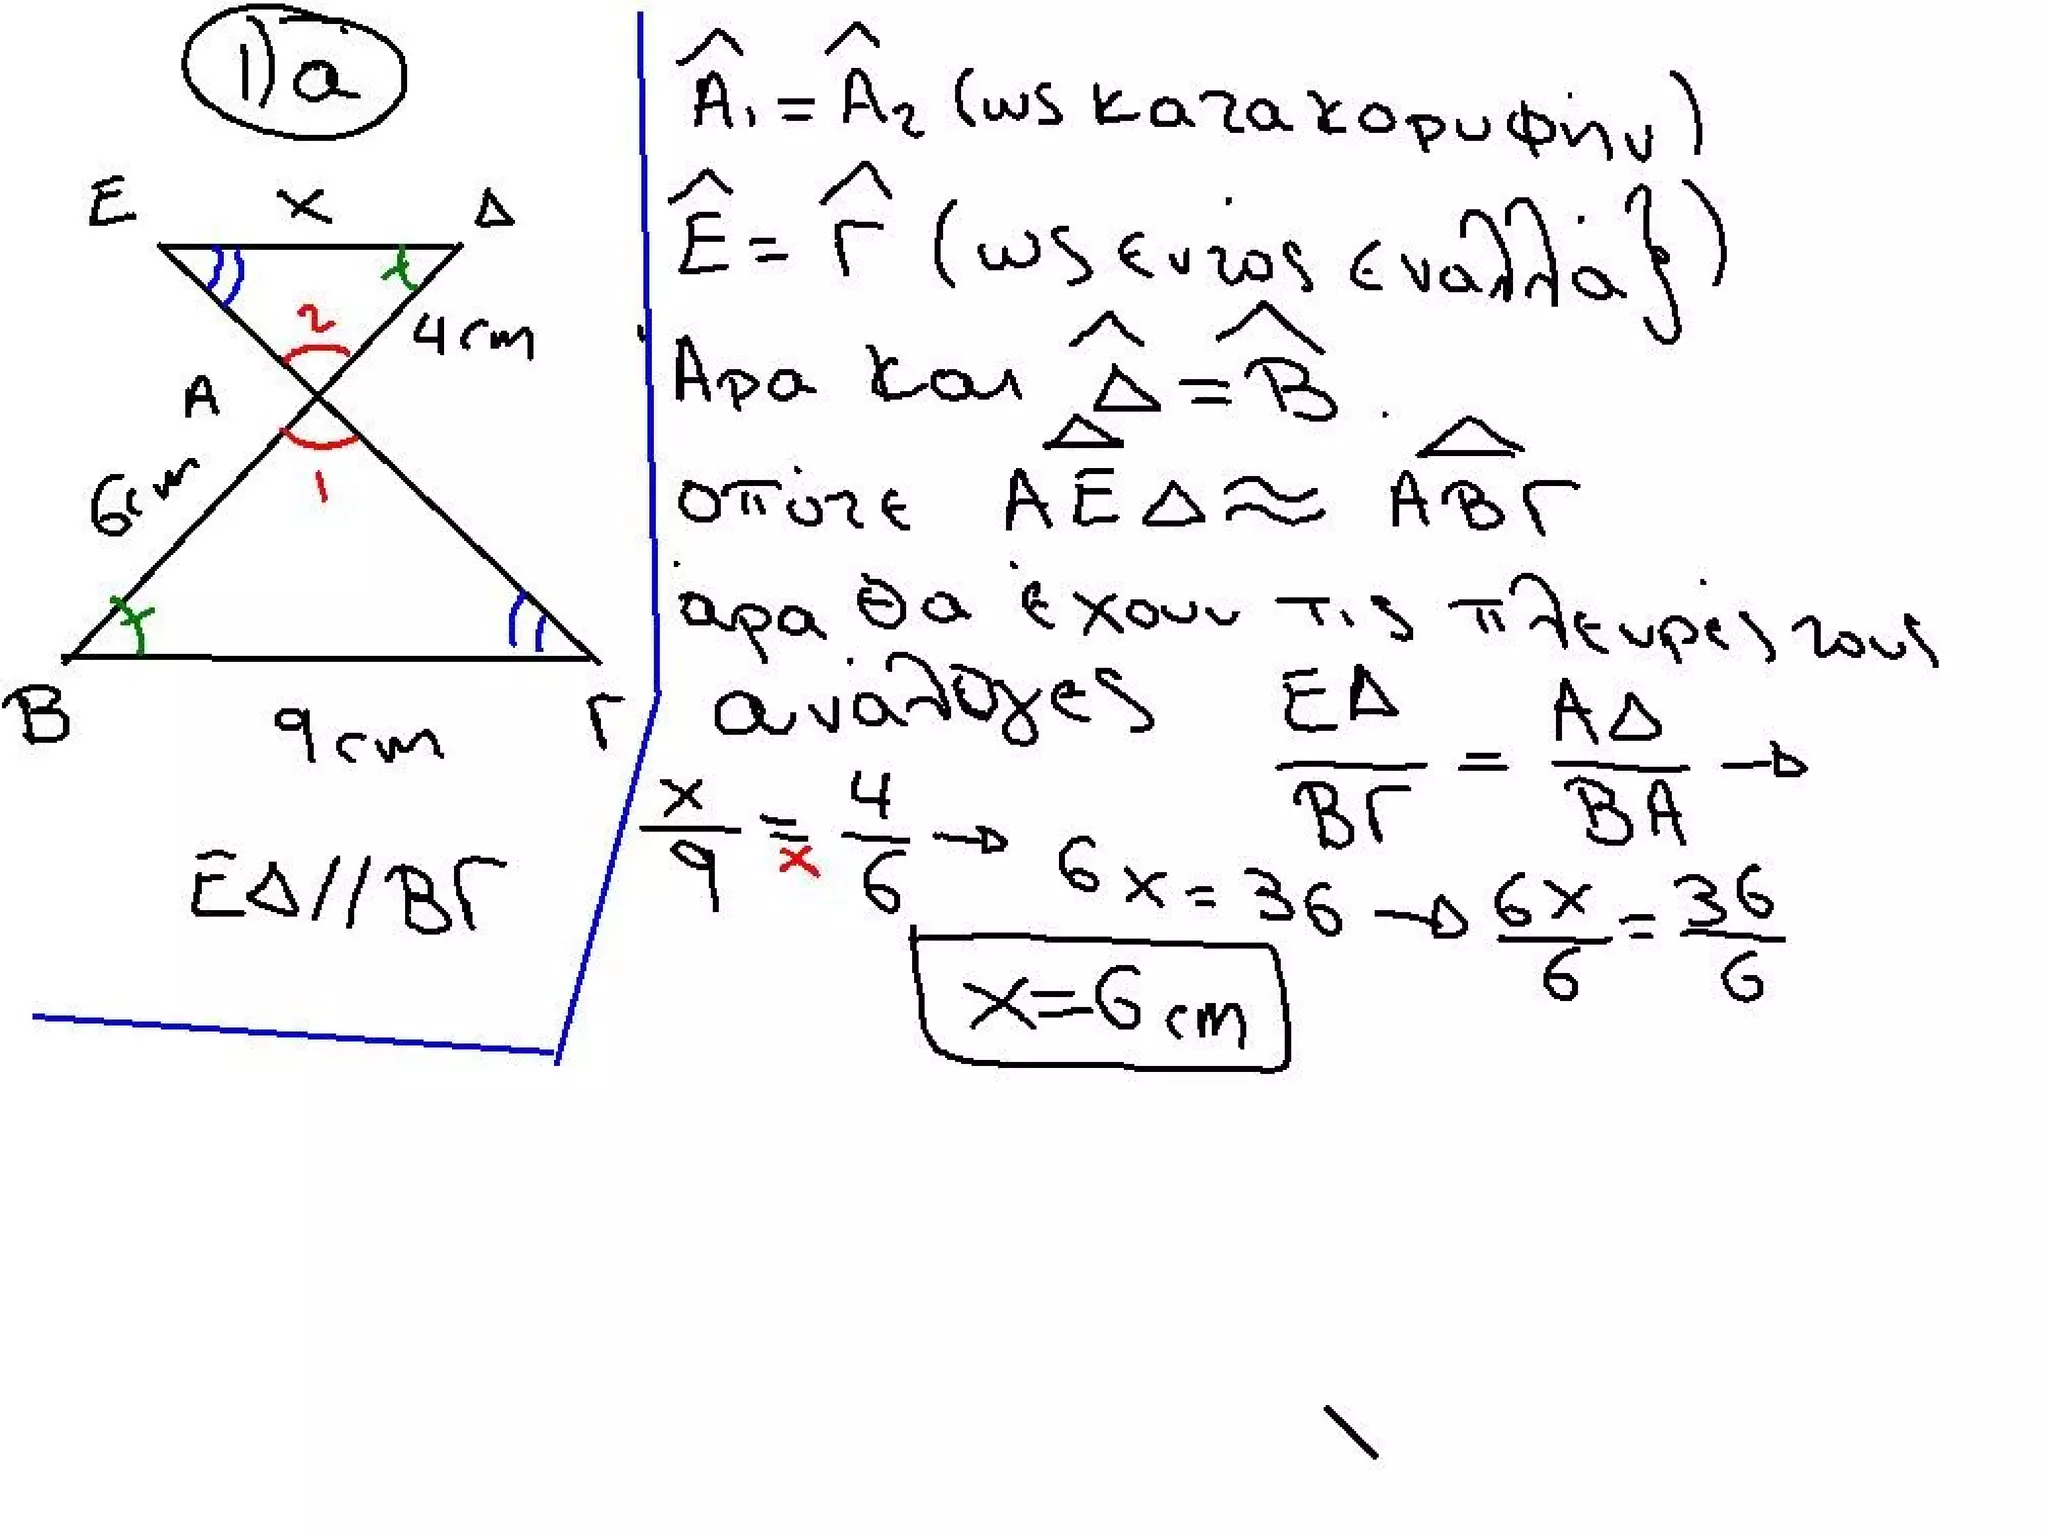 1) α
E x Δ
2
4cm
A
6cm
1
B 9cm Γ
EΔ//BΓ
Â₁ = Â₂ (ως κατακορυφήν)
Ê = Γ̂ (ως εντός εναλλάξ)
Άρα και Δ̂ = B̂.
οπότε AEΔ ≈ ABΓ
άρα θα έχουν τις πλευρές τους
ανάλογες EΔ/BΓ = AΔ/BA →
x/9 = 4/6 → 6x = 36 → 6x/6 = 36/6
x
x=6cm